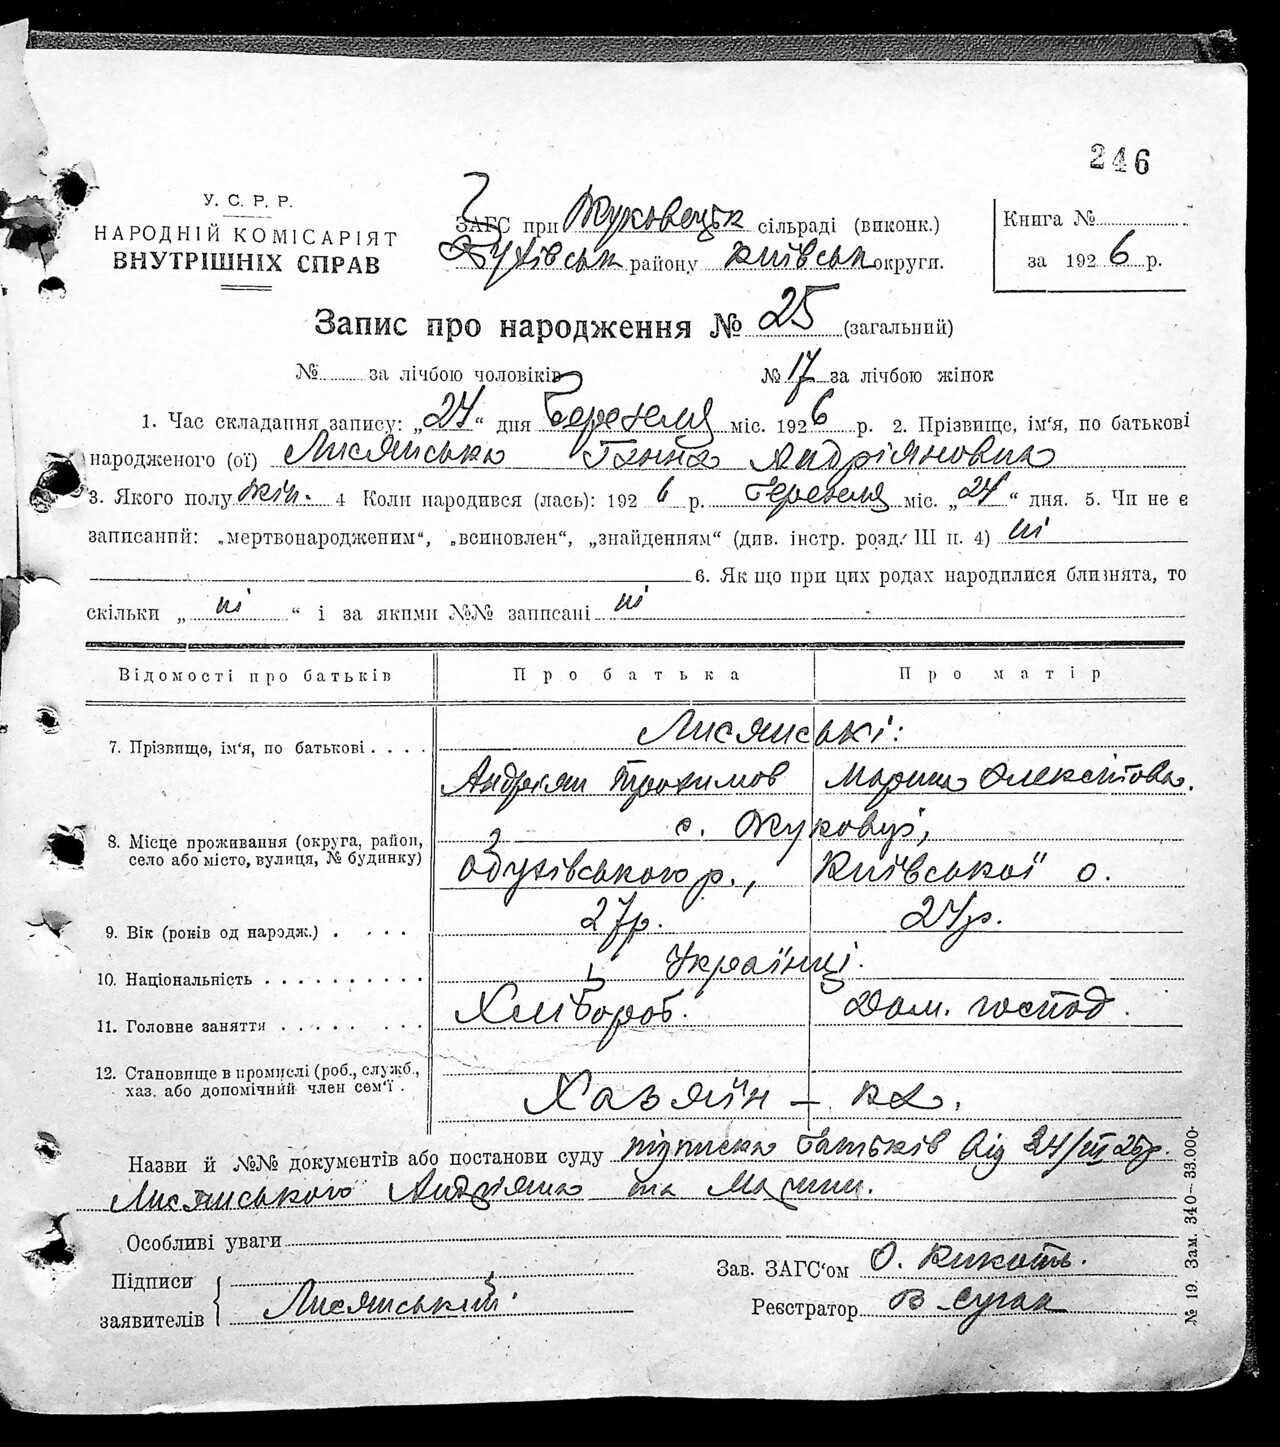 246
У. С. Р. Р.
НАРОДНІЙ КОМІСАРІЯТ
ВНУТРІШНІХ СПРАВ
ЗАГС при Жуковецьк сільраді (виконк.)
Обухівськ району Київськ округи.
Книга №
за 1926 р.
Запис про народження № 25 (загальний)
№ за лічбою чоловіків № 17 за лічбою жінок
1. Час складання запису: „24“ дня Березеля міс. 1926 р. 2. Прізвище, ім'я, по батькові
народженого (ої) Лисянська Ганна Андріяновна
3. Якого полу жін. 4 Коли народився (лась): 1926 р. Березеля міс. „24“ дня. 5. Чи не є
записаний: „мертвонародженим“, „всиновлен“, „знайденням“ (див. інстр. розд. III п. 4) ні
6. Як що при цих родах народилися близнята, то
скільки „ ні “ і за якими №№ записані ні
Відомості про батьків Про батька Про матір
7. Прізвище, ім'я, по батькові . . . . Лисянські:
Андріян Трохимов Марина Олексітова.
8. Місце проживання (округа, район, село або місто, вулиця, № будинку) с. Жуковці,
Обухівського р., Київської о.
9. Вік (років од нарадж.) . . . . 27р. 24р.
10. Національність . . . . . . . . . . Українці.
11. Головне заняття . . . . . . . . Хлібороб. Дом. господ.
12. Становище в промислі (роб., служб., хаз. або допомічний член сем'ї . Хазяїн –
Назви й №№ документів або постанови суду підписка батьків від 24/III 26р.
Лисянського Андріяна та Марини.
Особливі уваги
Підписи
заявителів Лисянський.
Зав. ЗАГС'ом О. Кикоть.
Реєстратор В
№ 19. Зам. 340—33.000-